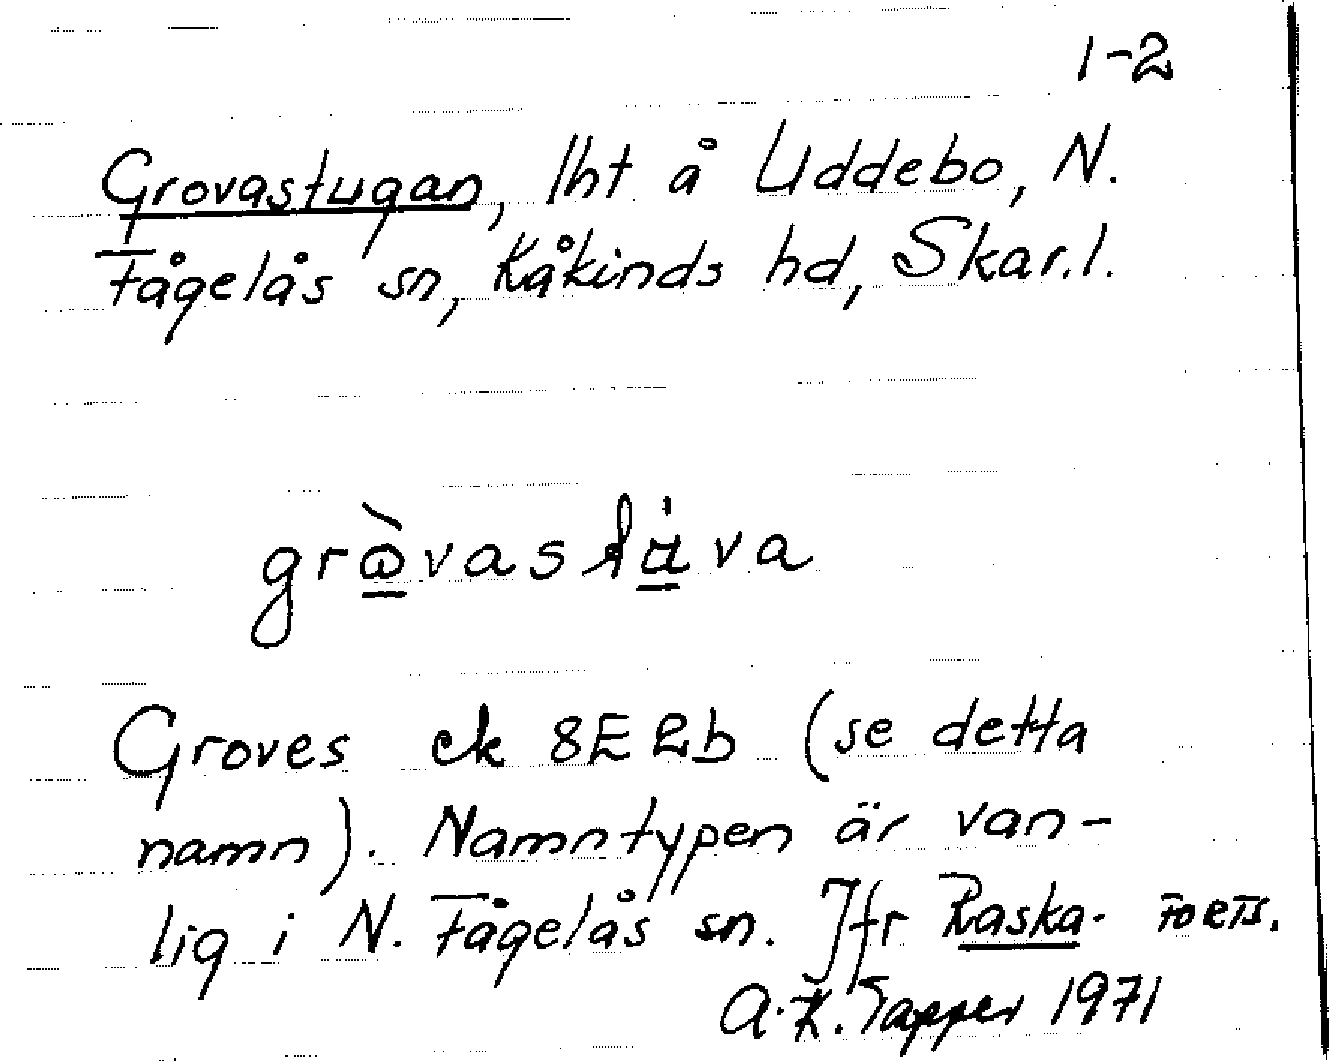 1-2
Grovastugan, lht å Uddebo, N.
Fågelås sn, Kåkinds hd, Skar.l.
Groves ek 8E2b (se detta
namn). Namntypen är van-
lig i N. Fågelås sn. Jfr Raska- FORTS.
A.K. Tapper 1971